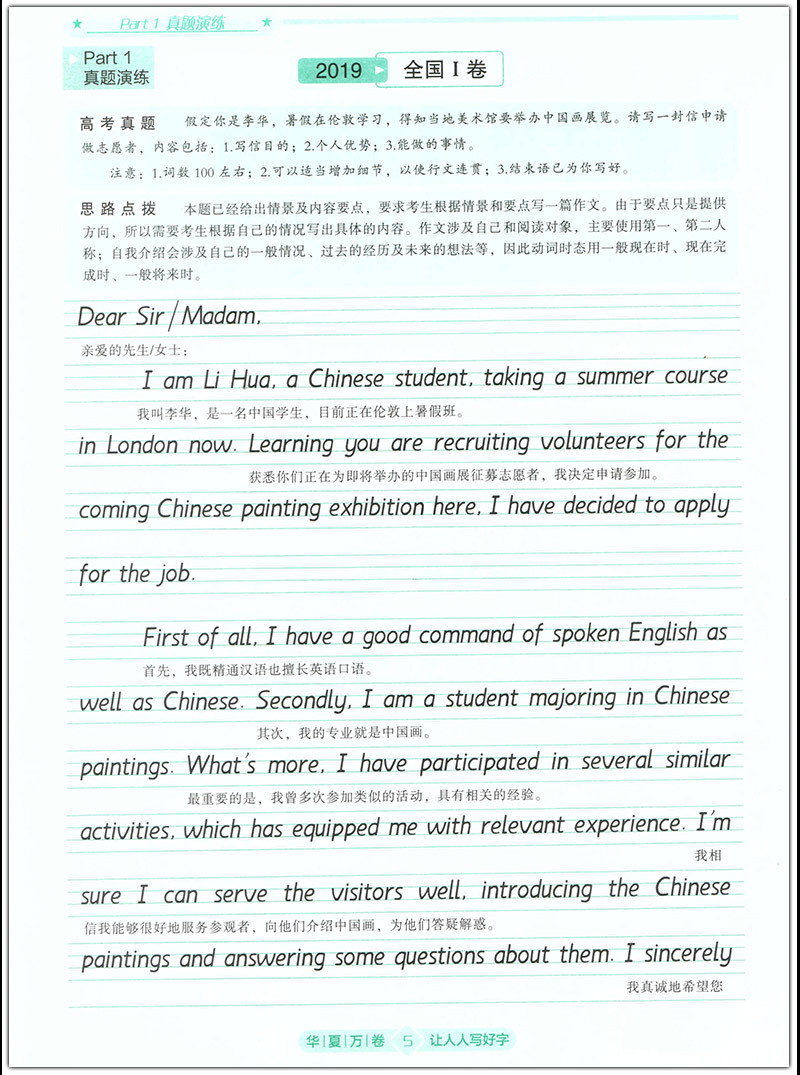 ★ Part 1 真题演练 ★
Part 1
真题演练
2019 全国Ⅰ卷
高考真题 假定你是李华，暑假在伦敦学习，得知当地美术馆要举办中国画展览。请写一封信申请
做志愿者，内容包括：1.写信目的；2.个人优势；3.能做的事情。
注意：1.词数 100 左右；2.可以适当增加细节，以使行文连贯；3.结束语已为你写好。
思路点拨 本题已经给出情景及内容要点，要求考生根据情景和要点写一篇作文。由于要点只是提供
方向，所以需要考生根据自己的情况写出具体的内容。作文涉及自己和阅读对象，主要使用第一、第二人
称；自我介绍会涉及自己的一般情况、过去的经历及未来的想法等，因此动词时态用一般现在时、现在完
成时、一般将来时。
Dear Sir/Madam,
亲爱的先生/女士：
I am Li Hua, a Chinese student, taking a summer course
我叫李华，是一名中国学生，目前正在伦敦上暑假班。
in London now. Learning you are recruiting volunteers for the
获悉你们正在为即将举办的中国画展征募志愿者，我决定申请参加。
coming Chinese painting exhibition here, I have decided to apply
for the job.
First of all, I have a good command of spoken English as
首先，我既精通汉语也擅长英语口语。
well as Chinese. Secondly, I am a student majoring in Chinese
其次，我的专业就是中国画。
paintings. What's more, I have participated in several similar
最重要的是，我曾多次参加类似的活动，具有相关的经验。
activities, which has equipped me with relevant experience. I'm
我相
sure I can serve the visitors well, introducing the Chinese
信我能够很好地服务参观者，向他们介绍中国画，为他们答疑解惑。
paintings and answering some questions about them. I sincerely
我真诚地希望您
华|夏|万|卷 5 让人人写好字